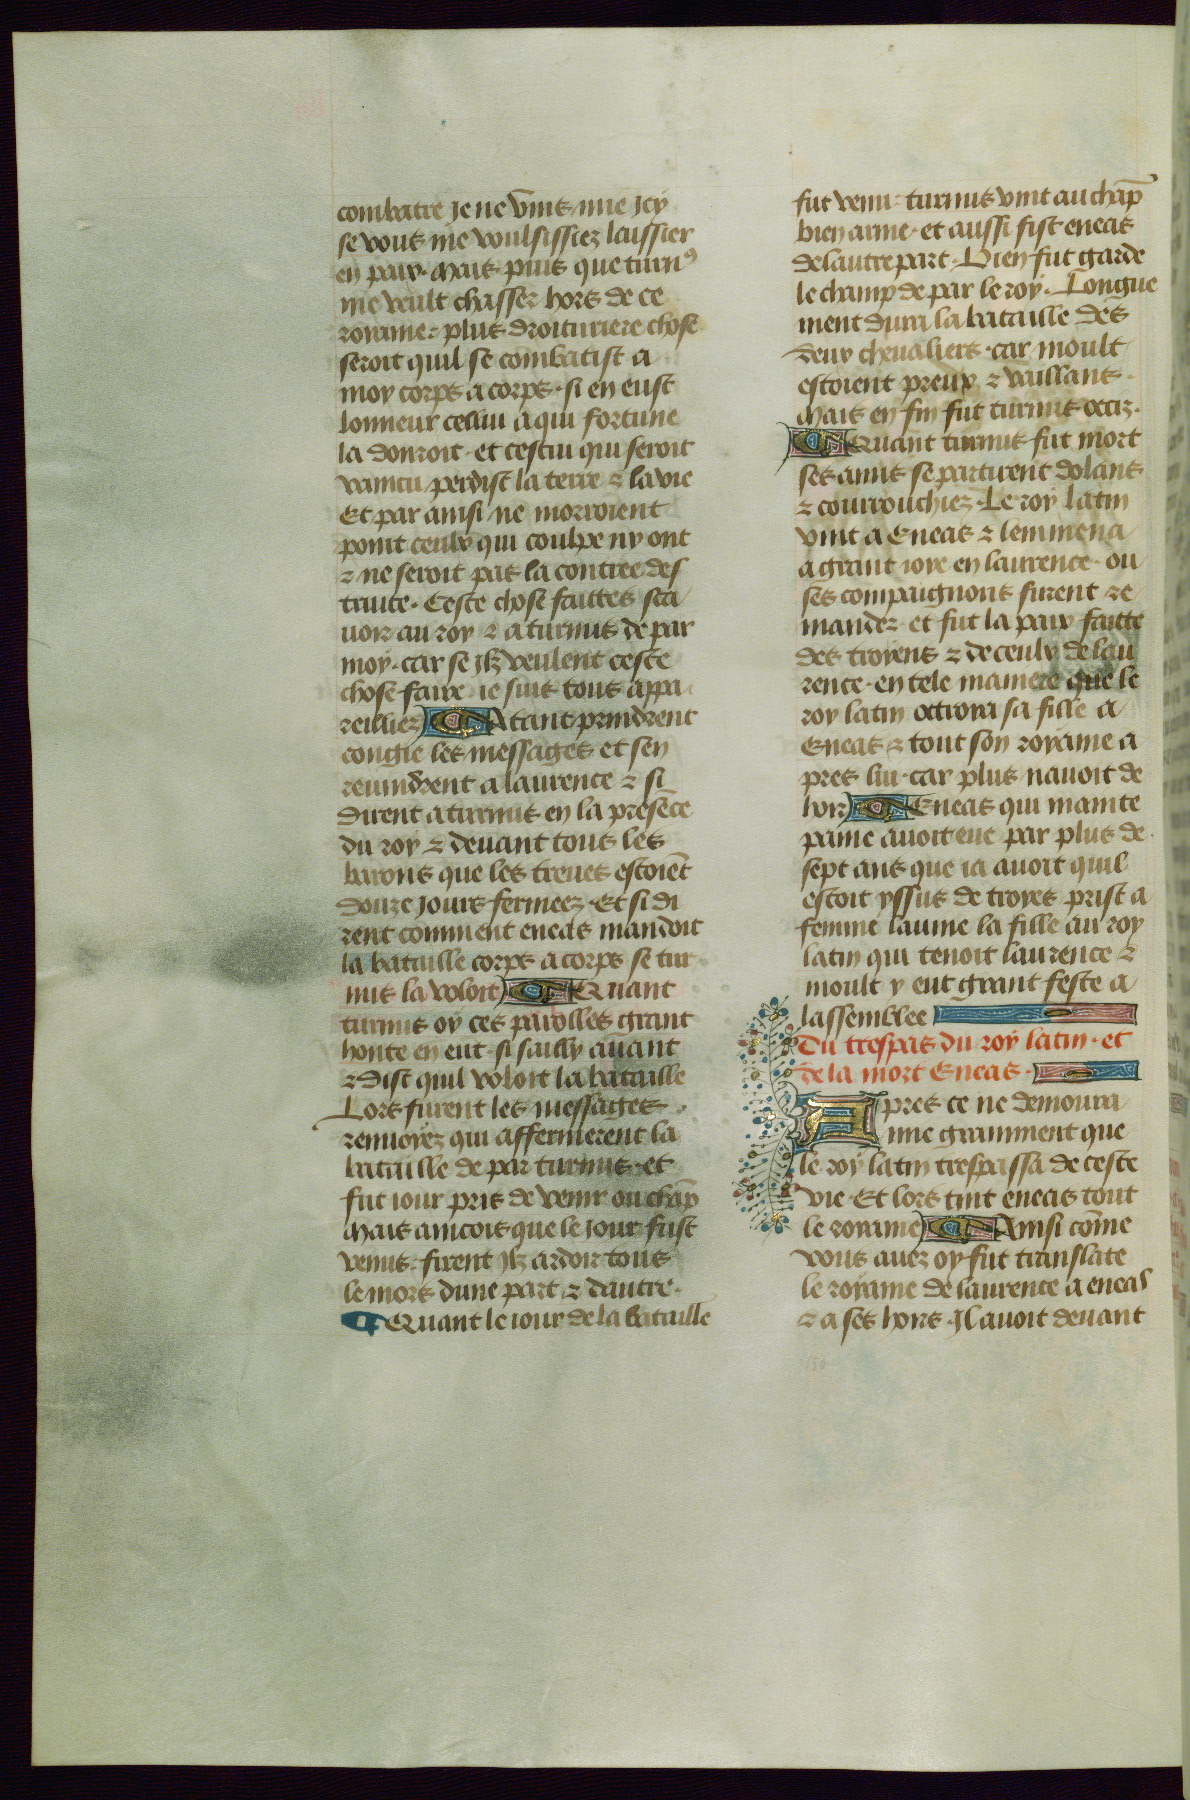 combatre je ne vins mie jcy
se vous me voulsissiez laissier
en paix. Mais puis que turnꝰ
me veult chasser hors de ce
roiaume plus droituriere chose
seroit quil se combatist a
moy corps a corps. si en eust
lonneur cellui a qui fortune
la donroit. et cestui qui seroit
vaincu perdist la terre ⁊ la vie
Et par ainsi ne morroient
point ceulx qui coulpe ny ont
⁊ ne seroit pas la contree des
truite. Ceste chose faittes sca
uoir au roy ⁊ a turnus de par
moy. car se jlz veulent ceste
chose faire ie suis tous appa
reilliez Atant prindrent
congie les messages et sen
reuindrent a laurence ⁊ si
dirent a turnus en la presēce
du roy ⁊ deuant tous les
barons que les treues estoiēt
douze jours fermeez. Et si di
rent comment eneas mandoit
la bataille corps a corps se tur
nus la voloit Quant
turnus oy ces parolles grant
honte en eut. si sailly auant
⁊ dist quil voloit la bataille
Lors furent les messages
renuoyez qui affermerent la
bataille de par turnus. et
fut iour pris de venir ou chāp
Mais aincois que le jour fust
venus. firent jlz ardoir tous
le mors dune part ⁊ dautre.
Quant le iour de la bataille
fut venu. turnus vint au chāp
bien arme. et aussi fist eneas
de lautre part. Bien fut garde
le champ de par le roy. Longue
ment dura la bataille des
deux cheualiers. car moult
estoient preux ⁊ vaillans.
Mais en fin fut turnus occiz.
Quant turnus fut mort
ses amis se partirent dolans
⁊ courrouchiez. Le roy latin
vint a Eneas ⁊ lemmena
a grant ioye en laurence. ou
ses compaignons furent re
mandez. et fut la paix faitte
des troyens ⁊ de ceulx de lau
rence. en tele maniere que le
roy latin octroia sa fille a
Eneas ⁊ tout son royame a
pres lui. car plus nauoit de
hoir Eneas qui mainte
paine auoit eue par plus de
sept ans que ia auoit quil
estoit yssus de troyes prist a
femme lauine la fille au roy
latin qui tenoit laurence ⁊
moult y eut grant feste a
lassemblee
Du trespas du roy latin. et
de la mort Eneas.
Apres ce ne demoura
mie gramment que
le roy latin trespassa de ceste
vie. Et lors tint eneas tout
le roiame Ainsi cōme
vous auez oy fut translate
le royame de laurence a eneas
⁊ a ses hoirs. Jl auoit deuant